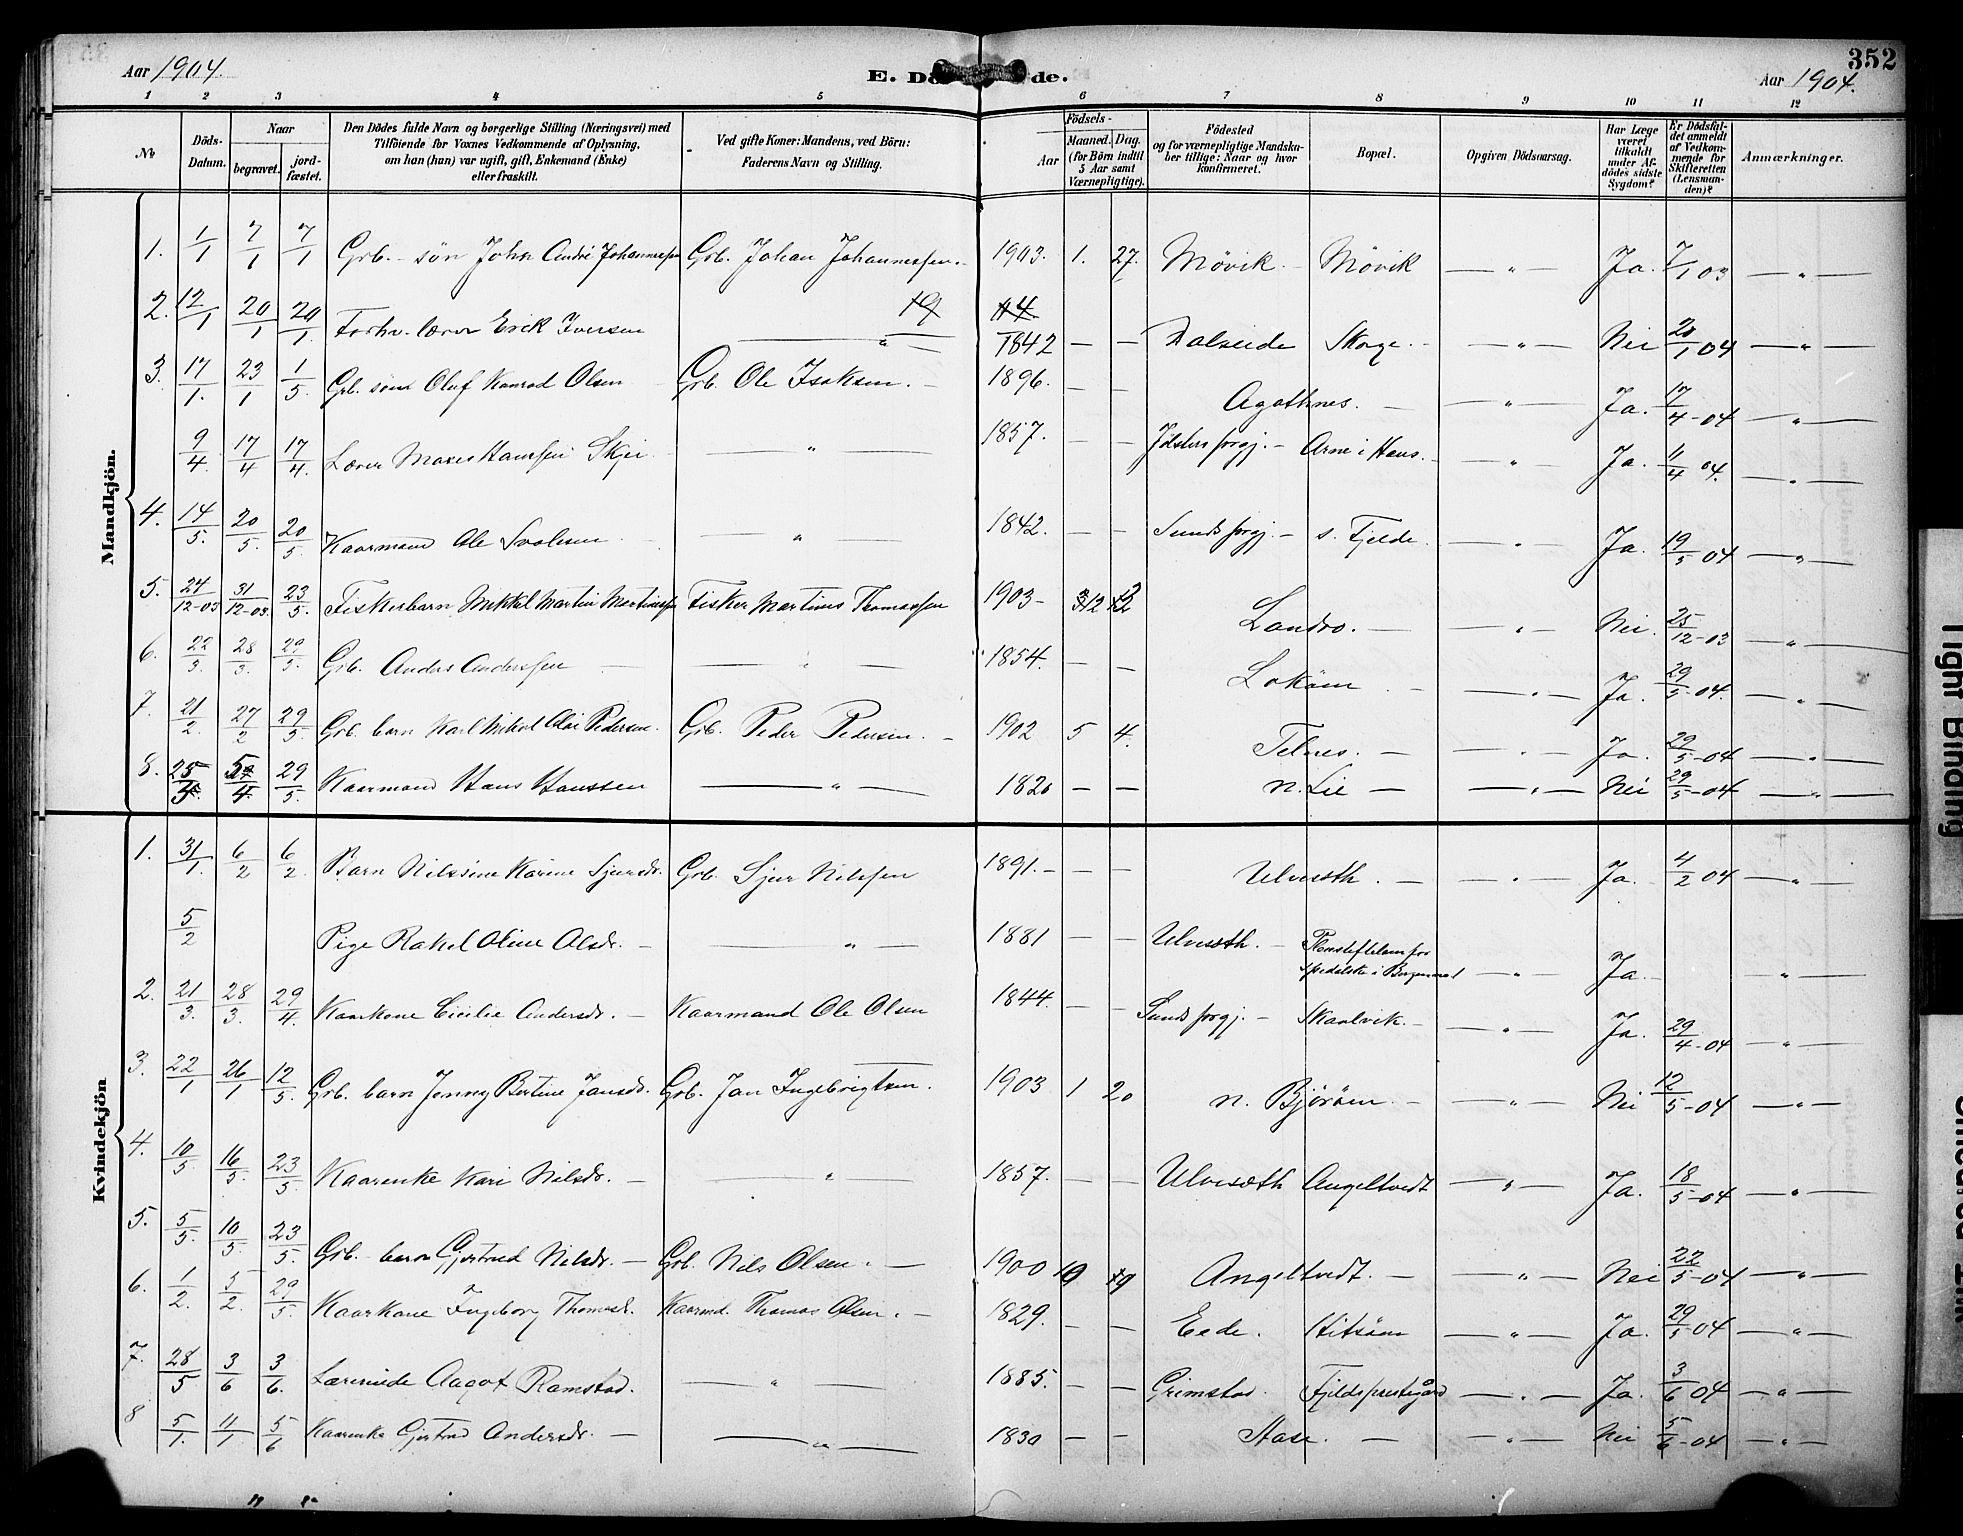 352
Aar 1904. E. Dö de. Aar 1904.
1 2 3 4 5 6 7 8 9 10 11 12
№ Döds-Datum. Naar begravet. jordfæstet. Den Dödes fulde Navn og borgerlige Stilling (Næringsvei) med Tilföiende for Voxnes Vedkommende af Oplysning, om han (hun) var ugift, gift, Enkemand (Enke) eller fraskilt. Ved gifte Koner: Mandens, ved Börn: Faderens Navn og Stilling. Födsels- Aar Maaned. Dag. (for Börn indtil 5 Aar samt Værnepligtige). Födested og for værnepligtige Mandskaber tillige: Naar og hvor konfirmeret. Bopæl. Opgiven Dödsaarsag. Har Læge været tilkaldt under Afdödes sidste Sygdom? Er Dödsfaldet anmeldt af Vedkommende for Skifteretten (Lensmanden)? Anmærkninger.
Mandkjön.
1. 1/1 7/1 7/1 Grb. - søn John André Johannessen Grb. Johan Johannessen. 1903. 1. 27. Møvik - Møvik — " — Ja. 7/1 03 — " —
2. 12/1 20/1 20/1 Forhv. lærer Erik Iversen — " — 1842 — — Dalseide Skoge. — " — Nei 20/1 04 — " —
3. 17/1. 23/1 1/5 Grb. søn Oluf Konrad Olsen Grb. Ole Isaksen. - 1896. — — Agothnes. — — " — Ja. 17/4-04 — " —
9/4 17/4 17/4. Lærer Moses Hanssen Skjei — " — 1857. — — Jølsters prgj. - Arne i Haus. — " — Ja. 11/4 04. — " —
4. 14/5. 20/5. 20/5 Kaarmand Ole — " — 1842. — — Sunds prgj. - s. Fjelde. — " — Ja. 19/5 04 — " —
5. 24/12-03 31/12-03. 23/5. Fiskerbarn Mikkel Martin Martinussen Fisker Martinus Thomassen 1903- 12 Landro. — — " — Nei. 25/12-03 — " —
6. 22/3. 28/3. 29/5. Grb. Anders Anderssen — " — 1854. — — Lokøen — — " — Ja. 29/5-04. — " —
7. 21/2. 27/2 29/5. Grb. barn Karl Mikal Olai Pedersen. Grb. Peder Pedersen. - 1902 5 4. Telnes. — — " — Ja. 29/5-04 — " —
8. 25/3. 5/4 29/5. Kaarmand Hans Hanssen — " — 1820 — — n. Lie — — " — Nei 29/5-04 — " —
Kvindekjön
1. 31/1. 6/2 6/2 Barn Nilssine Karine Sjursdr. Grb. Sjur Nilssen 1891. — — Ulvessth. — — " — Ja. 4/2 04 — " —
5/2 Pige Rakel Oline Olsdr. - — " — 1881 — — Ulvessth. - Pleiestiftelsen for
spedalske i Bergen — " — Ja. — " —
2. 21/3. 28/3. 29/4. Kaarkone Cicilie Andersdr. - Kaarmand Ole Olsen 1844. — — Sunds prgj. - Skaalvik. — " — Ja. 29/4-04 — " —
3. 22/1 26/1 12/5. Grb. barn Jenny Bertine Jansdr. Grb. Jan Ingebrigtsen. 1903 1 20 n. Bjørøen. — — " — Nei 12/5-04 — " —
4. 10/5. 16/5. 23/5. Kaarenke Kari Nilsdr. — " — 1857. — — Ulvesæth Angeltvedt — " — Ja. 18/5-04 — " —
5. 5/5. 10/5. 23/5. Grb. - barn Gjertrud Nilsdr. - Grb. Nils Olsen. - 1900 10 Angeltvedt. — — " — Nei 22/5-04 — " —
6. 1/2. 5/2. 29/5. Kaarkone Ingeborg Thomasdr. Kaarmd. Thomas Olsen. - 1829. — — Eede. Hitsøen — " — Ja. 29/5 04 — " —
7. 28/5 3/6 3/6. Lærerinde Aagot Ramstad. — " — 1885. — — Grimstad. Fjelds prestegård — " — Ja. 3/6 04 — " —
8 5/1. 11/1. 5/6 Kaarenke Gjertrud Andersdr. - — " — 1830 — — — " — Nei 5/6-04 — " —
Tight Binding